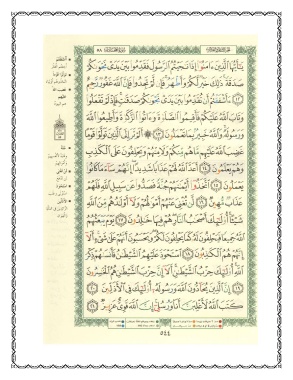 يَٰٓأَيُّهَا ٱلَّذِينَ ءَامَنُوٓا۟ إِذَا نَٰجَيْتُمُ ٱلرَّسُولَ فَقَدِّمُوا۟ بَيْنَ يَدَىْ نَجْوَىٰكُمْ
صَدَقَةً ذَٰلِكَ خَيْرٌ لَّكُمْ وَأَطْهَرُ فَإِن لَّمْ تَجِدُوا۟ فَإِنَّ ٱللَّهَ غَفُورٌ رَّحِيمٌ
١٢ ءَأَشْفَقْتُمْ أَن تُقَدِّمُوا۟ بَيْنَ يَدَىْ نَجْوَىٰكُمْ صَدَقَٰتٍ فَإِذْ لَمْ تَفْعَلُوا۟
وَتَابَ ٱللَّهُ عَلَيْكُمْ فَأَقِيمُوا۟ ٱلصَّلَوٰةَ وَءَاتُوا۟ ٱلزَّكَوٰةَ وَأَطِيعُوا۟ ٱللَّهَ
وَرَسُولَهُۥ وَٱللَّهُ خَبِيرٌۢ بِمَا تَعْمَلُونَ ١٣ ۞ أَلَمْ تَرَ إِلَى ٱلَّذِينَ تَوَلَّوْا۟ قَوْمًا
غَضِبَ ٱللَّهُ عَلَيْهِم مَّا هُم مِّنكُمْ وَلَا مِنْهُمْ وَيَحْلِفُونَ عَلَى ٱلْكَذِبِ
وَهُمْ يَعْلَمُونَ ١٤ أَعَدَّ ٱللَّهُ لَهُمْ عَذَابًا شَدِيدًا إِنَّهُمْ سَآءَ مَا كَانُوا۟
يَعْمَلُونَ ١٥ ٱتَّخَذُوٓا۟ أَيْمَٰنَهُمْ جُنَّةً فَصَدُّوا۟ عَن سَبِيلِ ٱللَّهِ فَلَهُمْ
عَذَابٌ مُّهِينٌ ١٦ لَّن تُغْنِىَ عَنْهُمْ أَمْوَٰلُهُمْ وَلَآ أَوْلَٰدُهُم مِّنَ ٱللَّهِ
شَيْـًٔا أُو۟لَٰٓئِكَ أَصْحَٰبُ ٱلنَّارِ هُمْ فِيهَا خَٰلِدُونَ ١٧ يَوْمَ يَبْعَثُهُمُ
ٱللَّهُ جَمِيعًا فَيَحْلِفُونَ لَهُۥ كَمَا يَحْلِفُونَ لَكُمْ وَيَحْسَبُونَ أَنَّهُمْ عَلَىٰ شَىْءٍ أَلَآ
إِنَّهُمْ هُمُ ٱلْكَٰذِبُونَ ١٨ ٱسْتَحْوَذَ عَلَيْهِمُ ٱلشَّيْطَٰنُ فَأَنسَىٰهُمْ ذِكْرَ
ٱللَّهِ أُو۟لَٰٓئِكَ حِزْبُ ٱلشَّيْطَٰنِ أَلَآ إِنَّ حِزْبَ ٱلشَّيْطَٰنِ هُمُ ٱلْخَٰسِرُونَ
١٩ إِنَّ ٱلَّذِينَ يُحَآدُّونَ ٱللَّهَ وَرَسُولَهُۥٓ أُو۟لَٰٓئِكَ فِى ٱلْأَذَلِّينَ ٢٠
كَتَبَ ٱللَّهُ لَأَغْلِبَنَّ أَنَا۠ وَرُسُلِىٓ إِنَّ ٱللَّهَ قَوِىٌّ عَزِيزٌ ٢١
٥٤٤